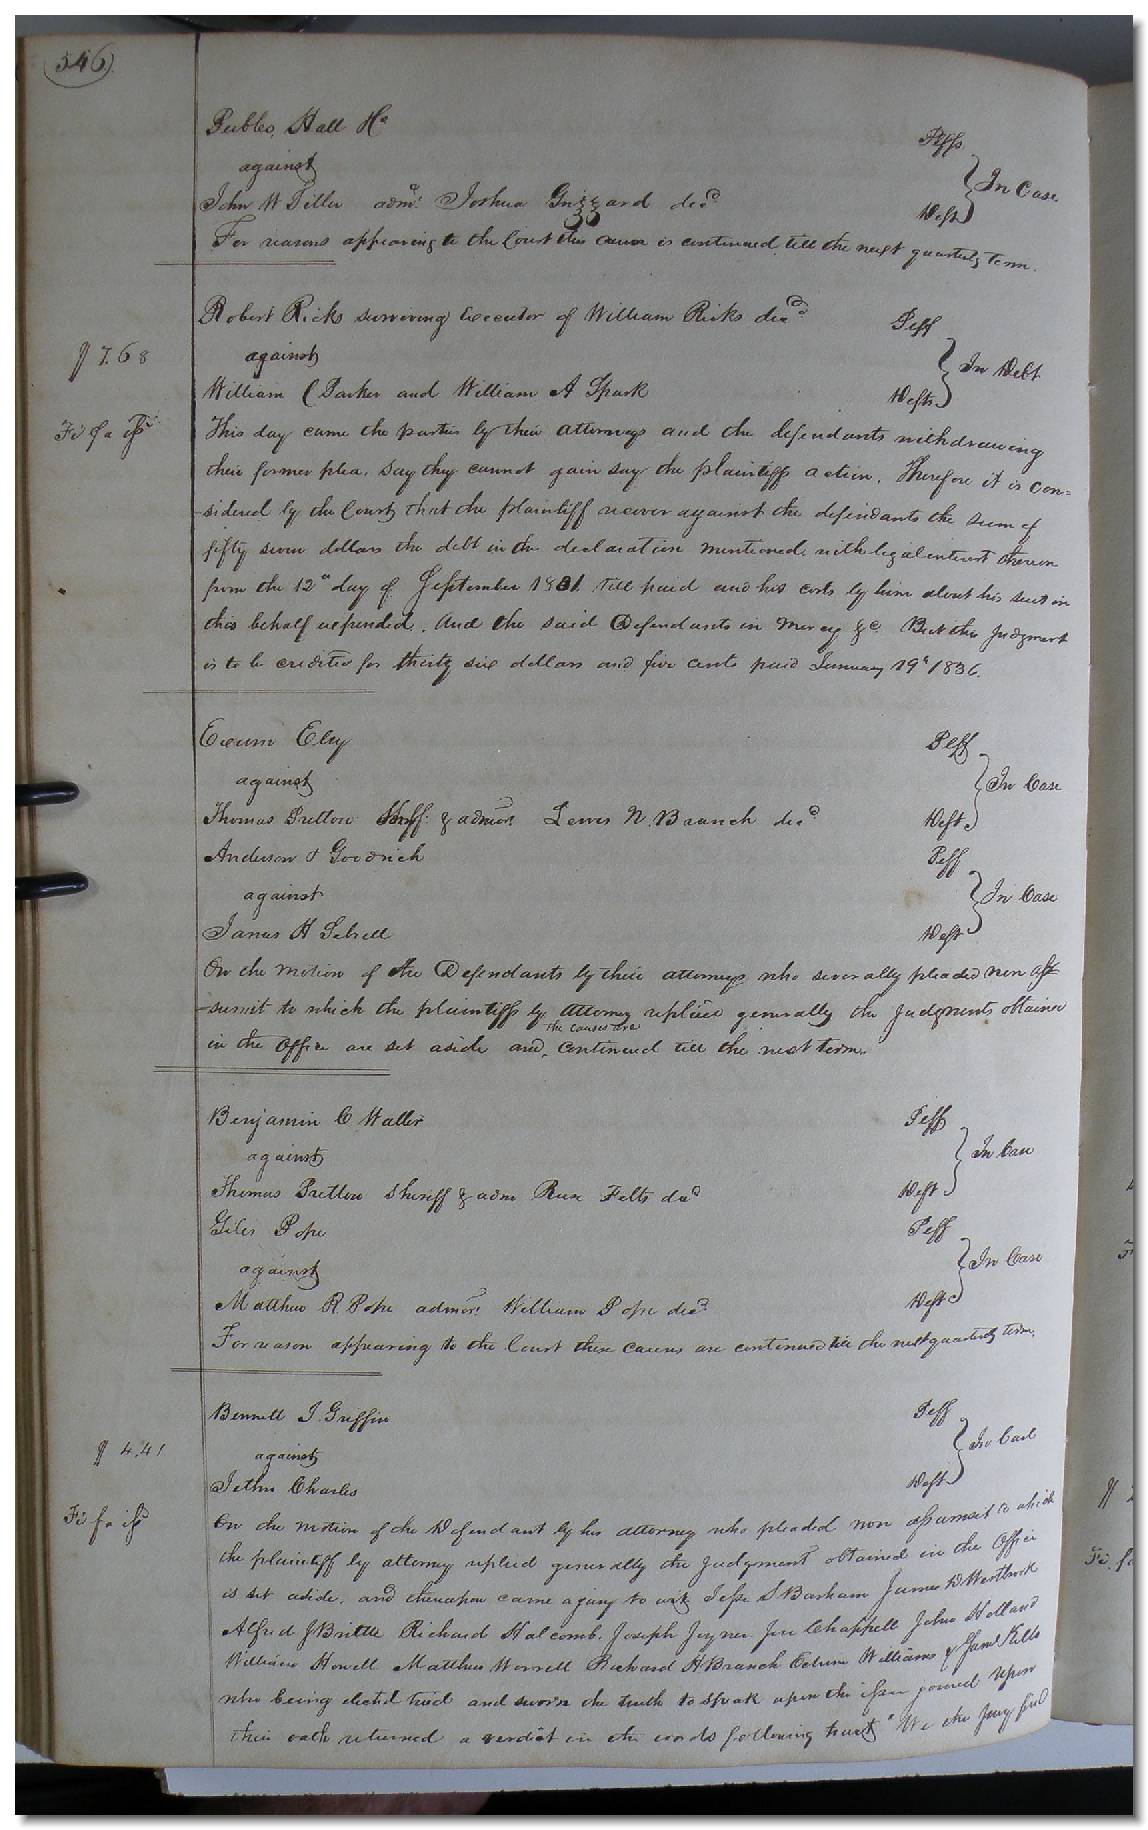 546
Peebles, Hall &c
Plffs
against
In Case
John W Tiller admr Joshua Grizzard decd
Deft
For reasons appearing to the Court this cause is continued till the next quarterly Term.
Robert Ricks surviving Executor of William Ricks decd
Plff
$ 7.68
against
In Debt
William C Parker and William A Spark
Defts
Fi fa issd
This day came the parties by their attorneys and the defendants withdrawing
their former plea, say they cannot gain say the plaintiffs action. Therefore it is con=
-sidered by the Court, that the plaintiff recover against the defendants the sum of
fifty seven dollars the debt in the declaration mentioned, with legal interest thereon
from the 12th day of September 1831 till paid and his costs by him about his suit in
this behalf expended. And the said Defendants in Mercy &c But this Judgment
is to be credited for thirty six dollars and five cents paid January 19th 1836.
Exum Eley
Plff
against
In Case
Thomas Pretlow Shff: & admor Lewis N. Branch decd
Deft
Anderson & Goodrich
Plff
against
In Case
James H Sebrell
Deft
On the motion of the Defendants by their attorneys who severally pleaded non as-
-sumsit to which the plaintiffs by attorney replied generally the Judgments obtained
the causes are
in the Office are set aside and continued till the next term.
Benjamin C Waller
Plff
against
In Case
Thomas Pretlow Sheriff & adm Felts decd
Deft
Giles Pope
Plff
against
In Case
Matthew R. Pope admor: William Pope decd
Deft
For reason appearing to the Court these causes are continued till the next quarterly term.
Bennett J. Griffin
Plff
$ 4.41
against
In Case
Jethro Charles
Deft
Fi fa issd
On the motion of the Defendant by his attorney who pleaded non assumsit to which
the plaintiff by attorney replied generally the Judgment obtained in the Office
is set aside, and thereupon came a jury to wit Jesse S Barham James D Westbrook
Alfred J Brittle Richard Halcomb, Joseph Joyner Chappell John Holland
William Howell Matthew Worrell Richard H Branch Williams & Saml Kello
who being elected tried and sworn the truth to speak upon the issue joined upon
their oath returned a verdict in the words following to wit "We the Jury find